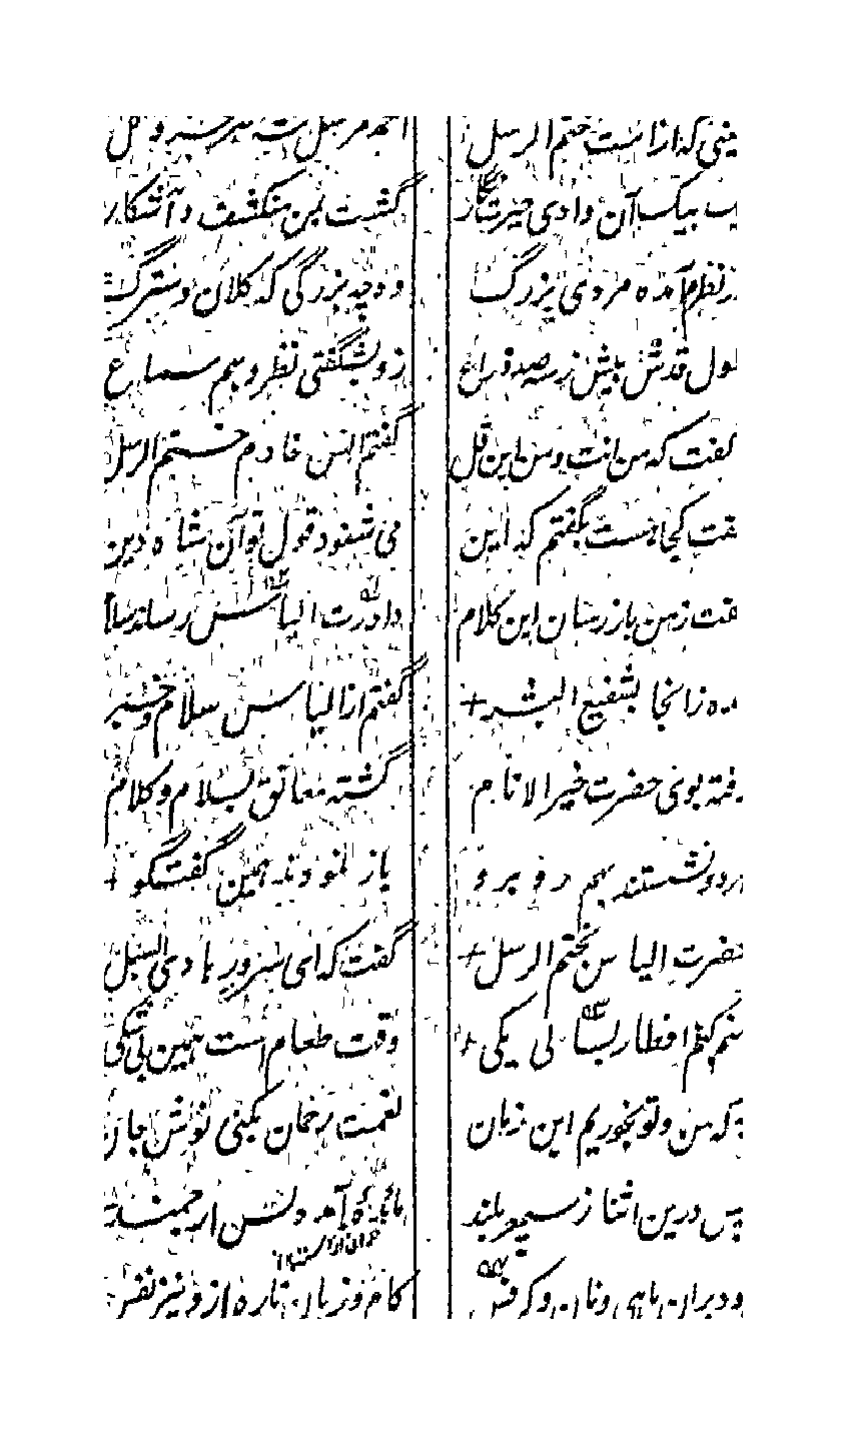 یعنی که از امت ختم الرسل احمد مرسل شه هر جزو و کل
بیک آن وادی حیرت گشت بمن منکشف و آشکار
در نظرم آمده مردی بزرگ وه چه بزرگی که کلان و سترگ
طول قدش بیش ز سه صد ذراع زو بشگفتی نظر و هم سماع
گفت که من انت و من این قل گفتم انس خادم ختم الرسل
گفت کجا هست بگفتم که این می شنود قول تو آن شاه دین
گفت ز من باز رسان این کلام دادرت الیاس رساند سلام
زانجا بشفیع البشر گفتم از الیاس سلام و خبر
رفته بوی حضرت خیر الانام گشته معانق بسلام و کلام
هر دو نشستند بهم روبرو باز نمودند همین گفتگو
حضرت الیاس بختم الرسل گفت که ای سرور هادی السبل
منم افطار بسالی یکی وقت طعام است همین بی شکی
به که من و تو بخوریم این زمان نعمت رحمان بکنی نوش جان
پس درین اثنا ز سپهر بلند مائده آمد و بس ارجمند
و دیران ماهی و نان و کرفس کام و زبان تازه ازو نیز نفس